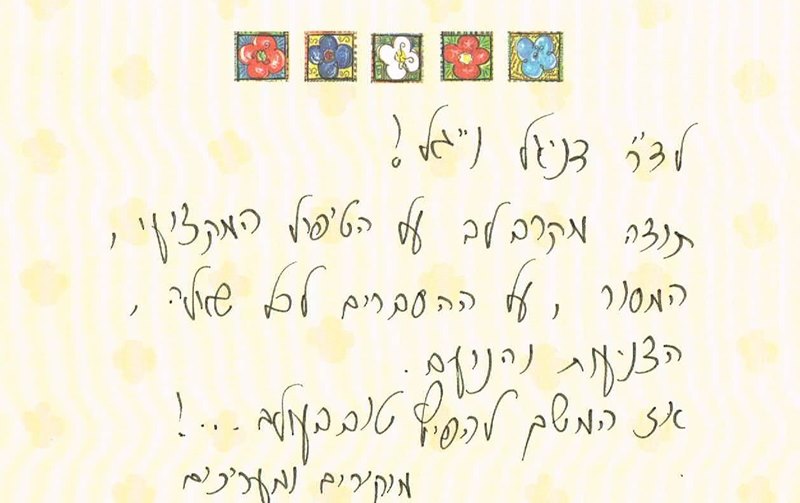 לד״ר דניאל נייגל!
תודה מקרב לב על הטיפול המקצועי,
המסור, על ההסברים לכל שאלה,
הצניעות והנועם.
אז המשך להפיץ טוב בעולם...!
מוקירים ומעריכים